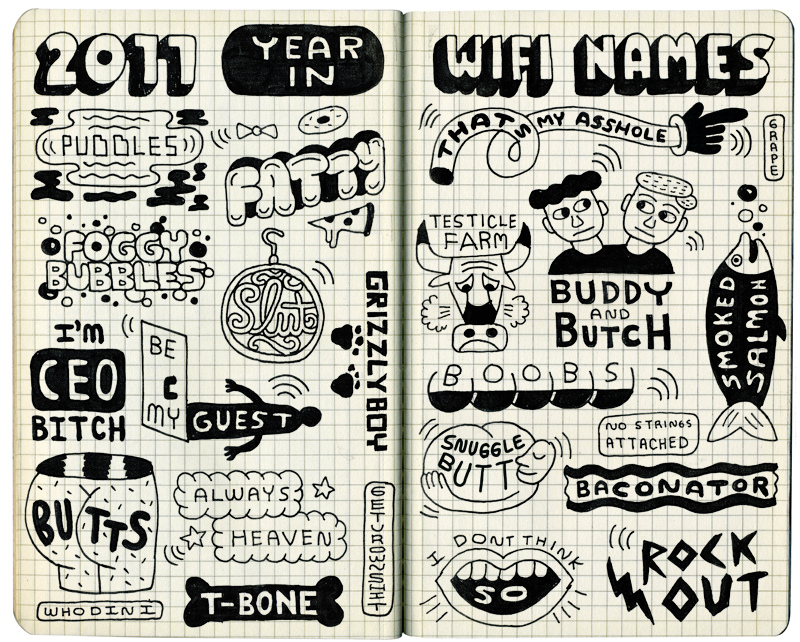 2011
YEAR
IN
PUDDLES
FATTY
FOGGY
BUBBLES
Slut
I'M
CEO
BITCH
BE
MY
GUEST
GRIZZLY BOY
BUTTS
ALWAYS
HEAVEN
WHODINI
T-BONE
WIFI NAMES
THAT'S MY ASSHOLE
GRAPE
TESTICLE
FARM
BUDDY
AND
BUTCH
SMOKED
SALMON
BOOBS
NO STRINGS
ATTACHED
SNUGGLE
BUTT
BACONATOR
I DONT THINK
SO
ROCK
OUT